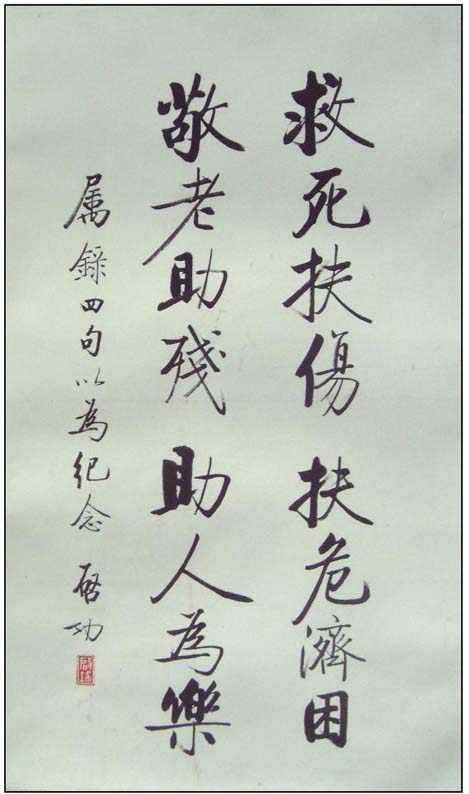 救死扶傷 扶危濟困
敬老助殘 助人為樂
属錄四句以為紀念 啓功